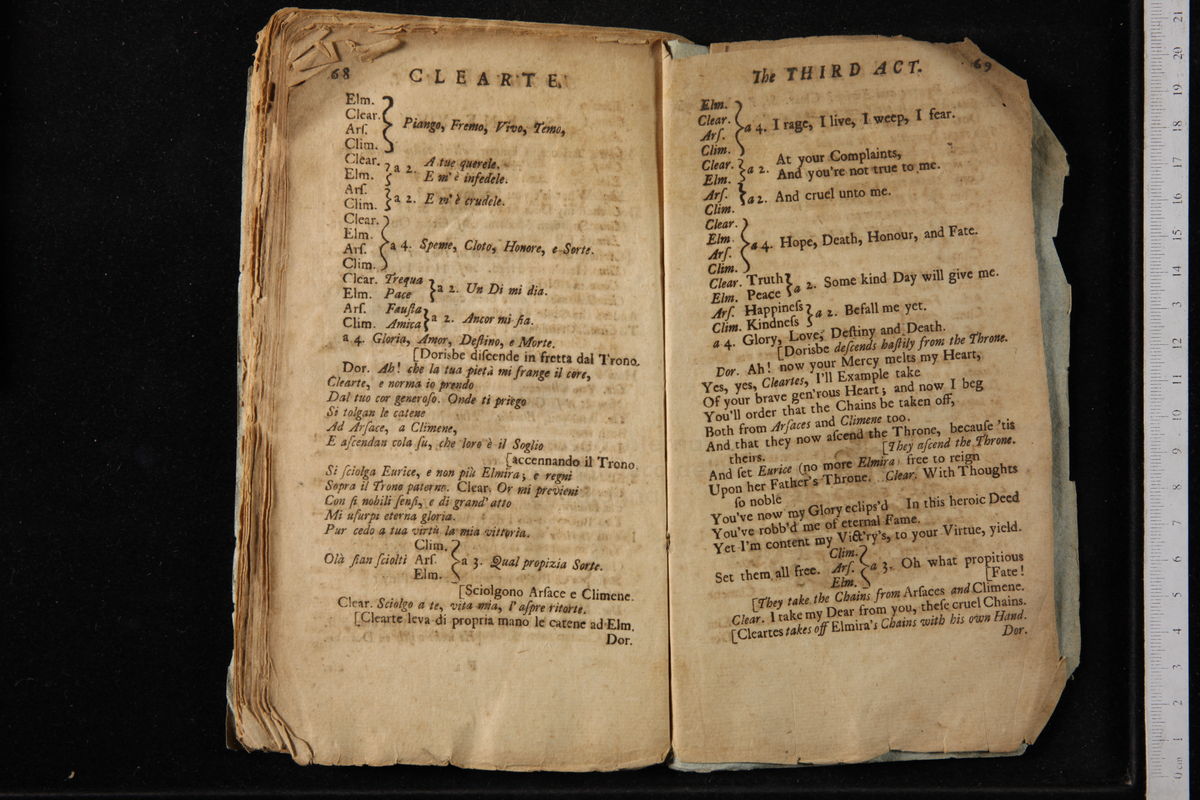 68 CLEARTE,
Elm.
Clear.
Arſ. Piango, Fremo, Vivo, Temo,
Clim.
Clear. a 2. A tue querele.
Elm. E m' è infedele.
Arſ.
Clim. a 2. E m' è crudele.
Clear.
Elm.
Arſ. a 4. Speme, Cloto, Honore, e Sorte.
Clim.
Clear. Trequa
Elm. Pace a 2. Un Di mi dia.
Arſ. Fauſta
Clim. Amica a 2. Ancor mi ſia.
a 4. Gloria, Amor, Deſtino, e Morte.
[Dorisbe diſcende in fretta dal Trono.
Dor. Ah! che la tua pietà mi frange il core,
Clearte, e norma io prendo
Dal tuo cor generoſo. Onde ti priego
Si tolgan le catene
Ad Arſace, a Climene,
E aſcendan cola ſu, che loro è il Soglio
[accennando il Trono.
Si ſciolga Eurice, e non più Elmira; e regni
Sopra il Trono paterno. Clear. Or mi previeni
Con ſi nobili ſenſi, e di grand' atto
Mi uſurpi eterna gloria.
Pur cedo a tua virtù la mia vittoria.
Clim.
Olà ſian ſciolti Arſ. a 3. Qual propizia Sorte.
Elm.
[Sciolgono Arſace e Climene.
Clear. Sciolgo a te, vita mia, l' aſpre ritorte.
[Clearte leva di propria mano le catene ad Elm.
Dor.
The THIRD ACT. 69
Elm.
Clear.
Arſ. a 4. I rage, I live, I weep, I fear.
Clim.
Clear. a 2. At your Complaints,
Elm. And you're not true to me.
Arſ. a 2. And cruel unto me.
Clim.
Clear.
Elm. a 4. Hope, Death, Honour, and Fate.
Arſ.
Clim.
Clear. Truth
Elm. Peace a 2. Some kind Day will give me.
Arſ. Happineſs
Clim. Kindneſs a 2. Befall me yet.
a 4. Glory, Love, Deſtiny and Death.
[Dorisbe deſcends haſtily from the Throne.
Dor. Ah! now your Mercy melts my Heart,
Yes, yes, Cleartes, I'll Example take
Of your brave gen'rous Heart; and now I beg
You'll order that the Chains be taken off,
Both from Arſaces and Climene too.
And that they now aſcend the Throne, becauſe 'tis
theirs. [They aſcend the Throne.
And ſet Eurice (no more Elmira) free to reign
Upon her Father's Throne. Clear. With Thoughts
ſo noble
You've now my Glory eclips'd In this heroic Deed
You've robb'd me of eternal Fame.
Yet I'm content my Vict'ry's, to your Virtue, yield.
Clim.
Set them all free. Arſ. a 3. Oh what propitious
Elm. [Fate!
[They take the Chains from Arſaces and Climene.
Clear. I take my Dear from you, theſe cruel Chains.
[Cleartes takes off Elmira's Chains with his own Hand.
Dor.